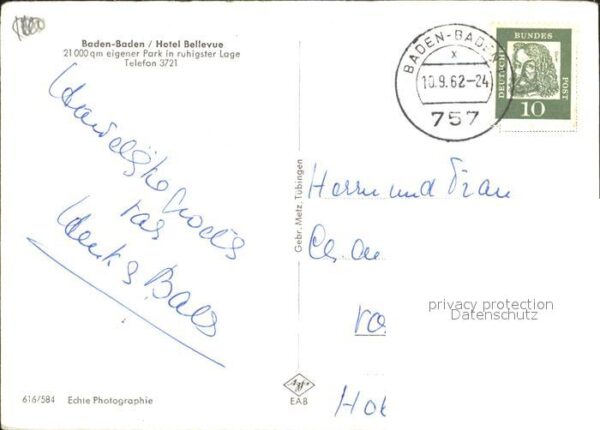 Baden-Baden / Hotel Bellevue
21 000 qm eigener Park in ruhigster Lage
Telefon 3721
Hartelijke groetjes
van
Henk & Bals
616/584 Echte Photographie
Gebr. Metz, Tübingen
Agfa
EAB
BADEN-BADEN
x
10.9.62-24
757
DEUTSCHE BUNDES POST
10
Herrn und Frau
privacy protection
Datenschutz